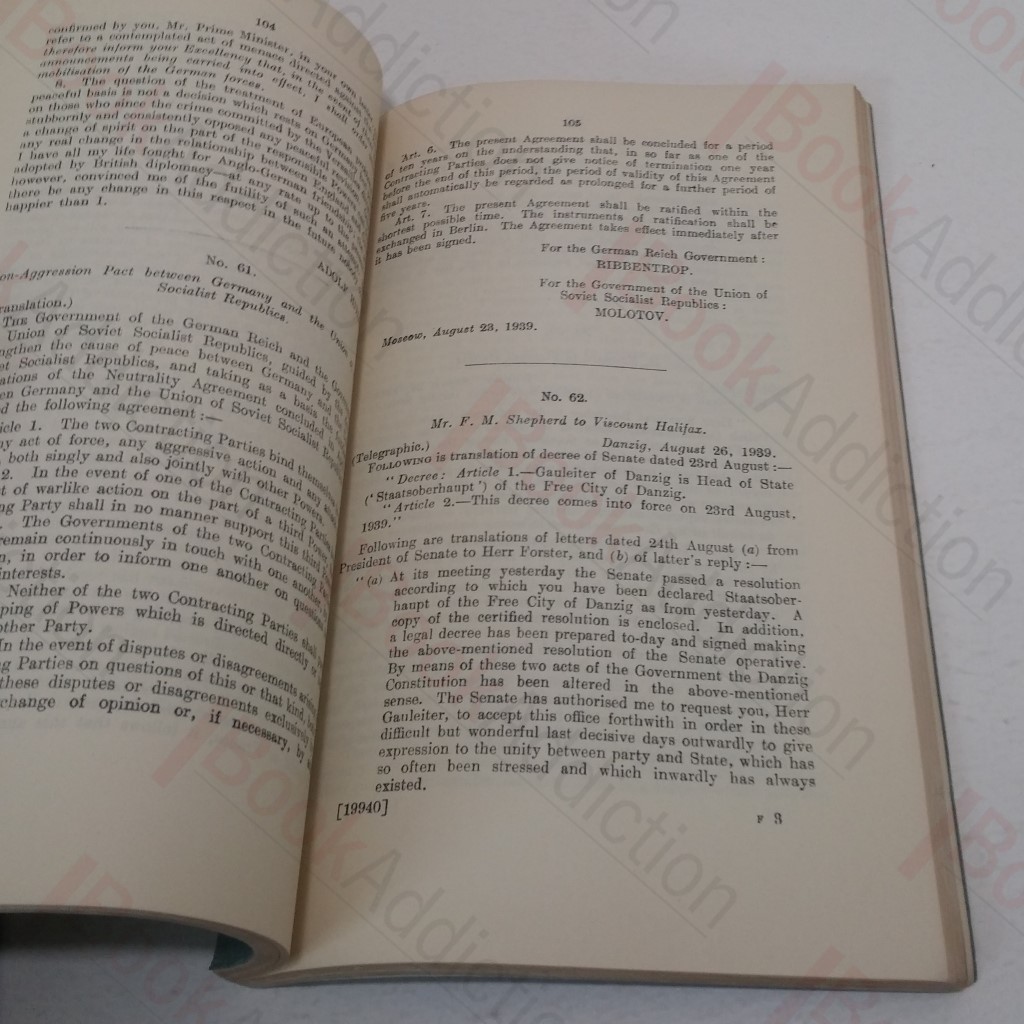 104
confirmed by you, Mr. Prime Minister, in your own
refer to a contemplated act of menace directed against
therefore inform your Excellency that, in the event of
announcements being carried into effect, I shall
mobilisation of the German forces.
8. The question of the treatment of European
peaceful basis is not a decision which rests on Germany
on those who since the crime committed by the
stubbornly and consistently opposed any peaceful
a change of spirit on the part of the responsible
any real change in the relationship between England
I have all my life fought for Anglo-German
adopted by British diplomacy—at any rate up to the
however, convinced me of the futility of such an
there be any change in this respect in the future
happier than I.
ADOLF
No. 61.
on-Aggression Pact between Germany and the Union
Socialist Republics.
ranslation.)
THE Government of the German Reich and the
Union of Soviet Socialist Republics, guided by the
ngthen the cause of peace between Germany and the
et Socialist Republics, and taking as a basis the
ations of the Neutrality Agreement concluded in
en Germany and the Union of Soviet Socialist
d the following agreement :—
icle 1. The two Contracting Parties bind themselves
y act of force, any aggressive action and any
both singly and also jointly with other Powers.
2. In the event of one of the Contracting Parties
t of warlike action on the part of a third Power
ng Party shall in no manner support this third Power
The Governments of the two Contracting
remain continuously in touch with one another,
n, in order to inform one another on questions
interests.
Neither of the two Contracting Parties shall
ping of Powers which is directed directly or
other Party.
In the event of disputes or disagreements
ng Parties on questions of this or that kind,
these disputes or disagreements exclusively
change of opinion or, if necessary, by
105
Art. 6. The present Agreement shall be concluded for a period
of ten years on the understanding that, in so far as one of the
Contracting Parties does not give notice of termination one year
before the end of this period, the period of validity of this Agreement
shall automatically be regarded as prolonged for a further period of
five years.
Art. 7. The present Agreement shall be ratified within the
shortest possible time. The instruments of ratification shall be
exchanged in Berlin. The Agreement takes effect immediately after
it has been signed.
For the German Reich Government :
RIBBENTROP.
For the Government of the Union of
Soviet Socialist Republics :
MOLOTOV.
Moscow, August 23, 1939.
No. 62.
Mr. F. M. Shepherd to Viscount Halifax.
(Telegraphic.) Danzig, August 26, 1939.
FOLLOWING is translation of decree of Senate dated 23rd August :—
" Decree : Article 1.—Gauleiter of Danzig is Head of State
(' Staatsoberhaupt ') of the Free City of Danzig.
" Article 2.—This decree comes into force on 23rd August,
1939."
Following are translations of letters dated 24th August (a) from
President of Senate to Herr Forster, and (b) of latter's reply :—
" (a) At its meeting yesterday the Senate passed a resolution
according to which you have been declared Staatsober-
haupt of the Free City of Danzig as from yesterday. A
copy of the certified resolution is enclosed. In addition,
a legal decree has been prepared to-day and signed making
the above-mentioned resolution of the Senate operative.
By means of these two acts of the Government the Danzig
Constitution has been altered in the above-mentioned
sense. The Senate has authorised me to request you, Herr
Gauleiter, to accept this office forthwith in order in these
difficult but wonderful last decisive days outwardly to give
expression to the unity between party and State, which has
so often been stressed and which inwardly has always
existed.
[19940] F 3
BookAddiction